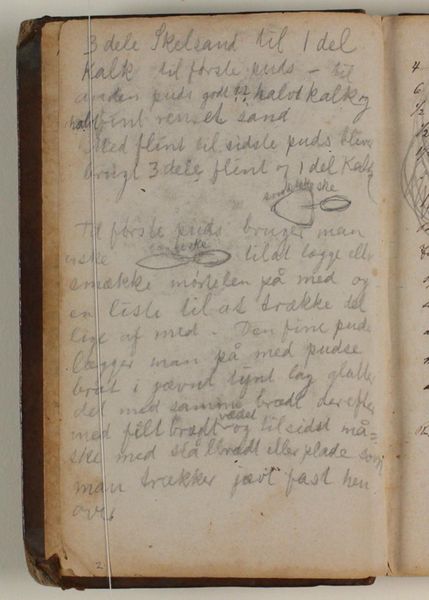 3 dele Skelsand til 1 del
Kalk til første puds – til
anden puds godt ½ halvt kalk og
halvt fint renset sand
Med flint til sidste puds bliver
brugt 3 dele flint og 1 del Kalk
ske
Til første puds bruger man
ske til at lægge eller
smække mørtelen på med og
en liste til at trække det
lige af med. Den fine puds
lægger man på med pudse
bræt i jævnt tyndt lag glatter
det med samme brædt derefter
vædet
med filtbrædt og til sidst må=
ske med stålbrædt eller plade som
man trækker jævt fast hen
over
2
4
6
1/2
1/2